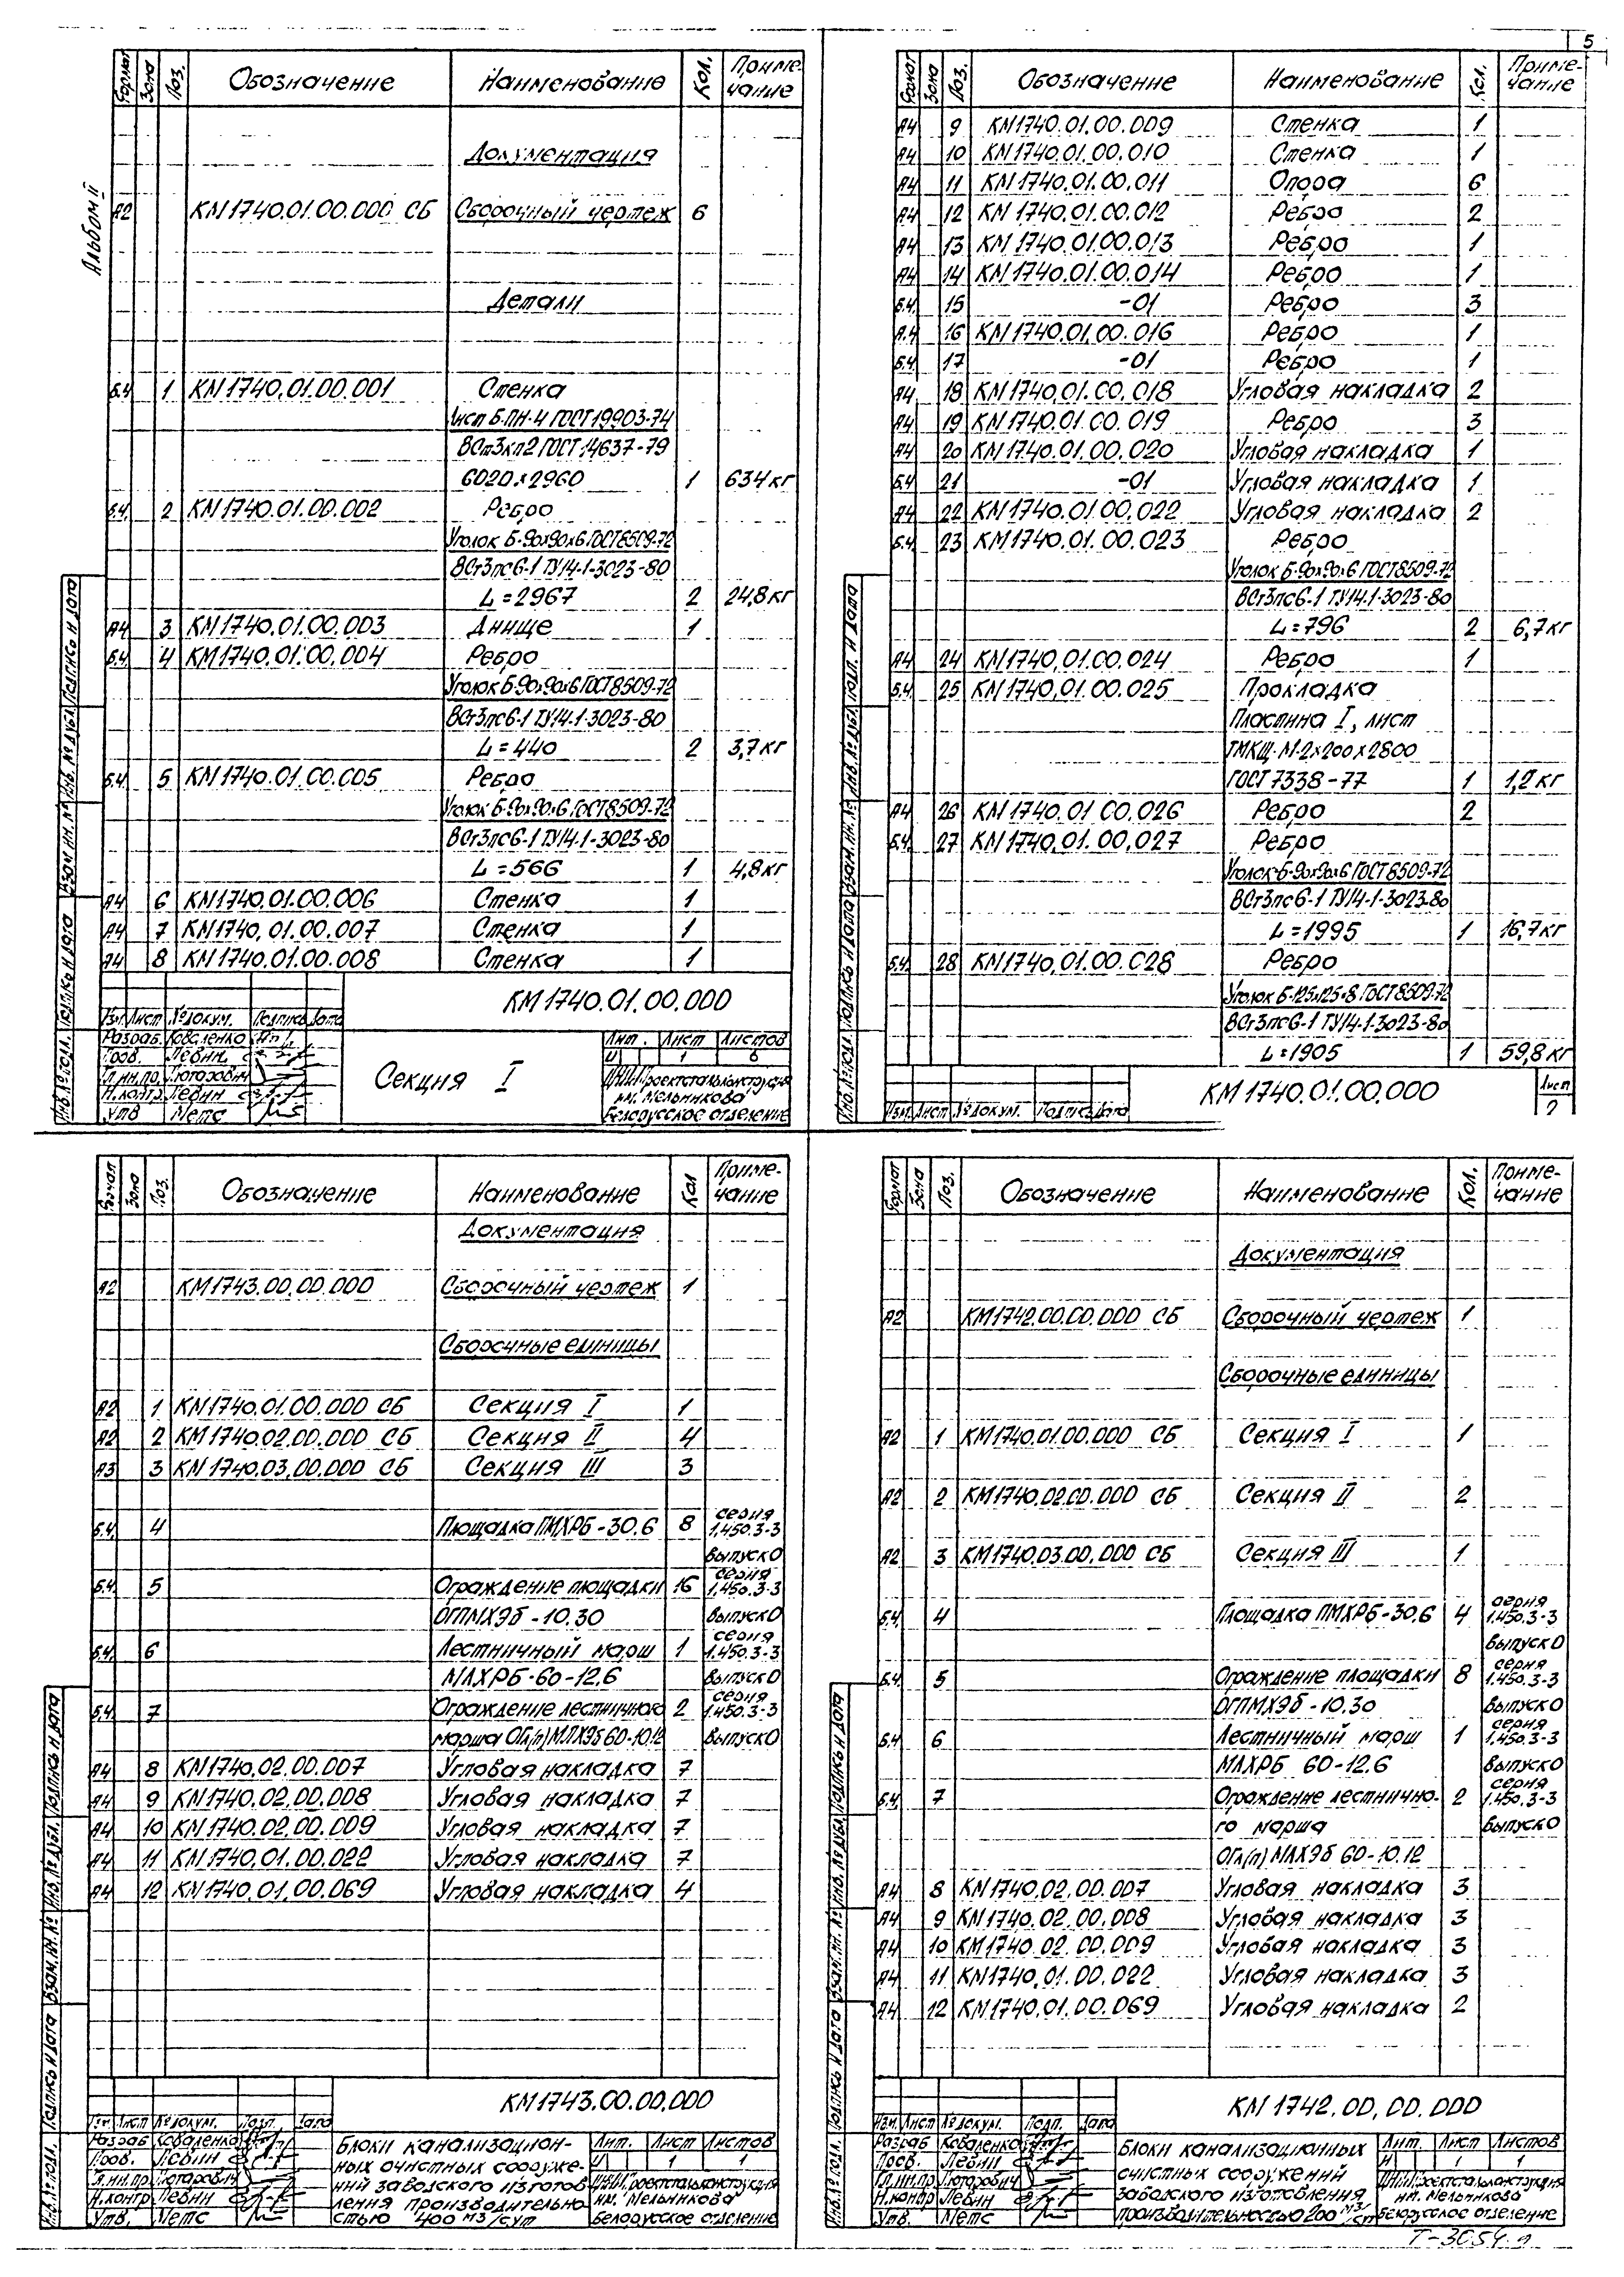 5
Альбом II
Формат Зона Поз. Обозначение Наименование Кол. Приме-
чание
Документация
А2 КМ1740.01.00.000 СБ Сборочный чертеж 6
Детали
Б.4 1 КМ1740.01.00.001 Стенка
Лист Б-ПН-4 ГОСТ 19903-74
ВСт3кп2 ГОСТ 14637-79
6020х2960 1 634 кг
Б.4. 2 КМ1740.01.00.002 Ребро
Уголок Б-90х90х6 ГОСТ 8509-72
ВСт3пс6-1 ТУ14-1-3023-80
L=2967 2 24,8 кг
А4 3 КМ1740.01.00.003 Днище 1
Б.4 4 КМ1740.01.00.004 Ребро
Уголок Б-90х90х6 ГОСТ 8509-72
ВСт3пс6-1 ТУ14-1-3023-80
L=440 2 3,7 кг
Б.4. 5 КМ1740.01.00.005 Ребро
Уголок Б-90х90х6 ГОСТ 8509-72
ВСт3пс6-1 ТУ14-1-3023-80
L=566 1 4,8 кг
А4 6 КМ1740.01.00.006 Стенка 1
А4 7 КМ1740.01.00.007 Стенка 1
А4 8 КМ1740.01.00.008 Стенка 1
КМ1740.01.00.000
Изм. Лист №докум. Подпись Дата
Разраб. Коваленко
Пров. Левин
Гл.ин.пр. Лютарович
Н.контр. Левин
Утв Метс
Секция I
Лит. Лист Листов
И 1 6
ЦНИИПроектстальконструкция
им. Мельникова
Белорусское отделение
Инв.№подл. Подпись и дата Взам.ин.№ Инв.№дубл. Подпись и дата
Формат Зона Поз. Обозначение Наименование Кол. Приме-
чание
А4 9 КМ1740.01.00.009 Стенка 1
А4 10 КМ1740.01.00.010 Стенка 1
А4 11 КМ1740.01.00.011 Опора 6
А4 12 КМ1740.01.00.012 Ребро 2
А4 13 КМ1740.01.00.013 Ребро 1
А4 14 КМ1740.01.00.014 Ребро 1
Б.4. 15 -01 Ребро 3
А.4 16 КМ1740.01.00.016 Ребро 1
Б.4. 17 -01 Ребро 1
А4 18 КМ1740.01.00.018 Угловая накладка 2
А4 19 КМ1740.01.00.019 Ребро 3
А4 20 КМ1740.01.00.020 Угловая накладка 1
Б.4 21 -01 Угловая накладка 1
А4 22 КМ1740.01.00.022 Угловая накладка 2
Б.4 23 КМ1740.01.00.023 Ребро
Уголок Б-90х90х6 ГОСТ 8509-72
ВСт3пс6-1 ТУ14-1-3023-80
L=796 2 6,7 кг
А4 24 КМ1740.01.00.024 Ребро 1
Б.4 25 КМ1740.01.00.025 Прокладка
Пластина I, лист
ТМКЩ-М-2х200х2800
ГОСТ 7338-77 1 1,2 кг
А4 26 КМ1740.01.00.026 Ребро 2
Б.4. 27 КМ1740.01.00.027 Ребро
Уголок Б-90х90х6 ГОСТ 8509-72
ВСт3пс6-1 ТУ14-1-3023-80
L=1995 1 16,7 кг
Б.4. 28 КМ1740.01.00.028 Ребро
Уголок Б-125х125х8 ГОСТ 8509-72
ВСт3пс6-1 ТУ14-1-3023-80
L=1905 1 59,8 кг
Изм. Лист №докум. Подпись Дата
КМ1740.01.00.000
Лист
2
Инв.№подл. Подпись и дата Взам.ин.№ Инв.№дубл. Подп. и дата
Формат Зона Поз. Обозначение Наименование Кол Приме-
чание
Документация
А2 КМ1743.00.00.000 Сборочный чертеж 1
Сборочные единицы
А2 1 КМ1740.01.00.000 СБ Секция I 1
А2 2 КМ1740.02.00.000 СБ Секция II 4
А3 3 КМ1740.03.00.000 СБ Секция III 3
Б.4. 4 Площадка ПМХРБ-30.6 8 серия
1.450.3-3
выпуск 0
Б.4. 5 Ограждение площадки 16 серия
1.450.3-3
ОГПМХЭб-10.30 выпуск 0
Б.4. 6 Лестничный марш 1 серия
1.450.3-3
МЛХРБ-60-12.6 выпуск 0
Б.4. 7 Ограждение лестничного 2 серия
1.450.3-3
марша ОГл(п)МЛХЭб 60-10.12 выпуск 0
А4 8 КМ1740.02.00.007 Угловая накладка 7
А4 9 КМ1740.02.00.008 Угловая накладка 7
А4 10 КМ1740.02.00.009 Угловая накладка 7
А4 11 КМ1740.01.00.022 Угловая накладка 7
А4 12 КМ1740.01.00.069 Угловая накладка 4
КМ1743.00.00.000
Изм Лист №докум. Подп. Дата
Разраб Коваленко
Пров. Левин
Гл.ин.пр. Лютарович
Н.контр Левин
Утв. Метс
Блоки канализацион-
ных очистных сооруже-
ний заводского изготов
ления производительно-
стью 400 м3/сут
Лит. Лист Листов
И 1 1
ЦНИИПроектстальконструкция
им. Мельникова
Белорусское отделение
Инв.№подл. Подпись и дата Взам.ин.№ Инв.№дубл. Подпись и дата
Формат Зона Поз. Обозначение Наименование Кол. Приме-
чание
Документация
А2 КМ1742.00.00.000 СБ Сборочный чертеж 1
Сборочные единицы
А2 1 КМ1740.01.00.000 СБ Секция I 1
А2 2 КМ1740.02.00.000 СБ Секция II 2
А2 3 КМ1740.03.00.000 СБ Секция III 1
Б.4. 4 Площадка ПМХРБ-30.6 4 серия
1.450.3-3
выпуск 0
Б.4. 5 Ограждение площадки 8 серия
1.450.3-3
ОГПМХЭб-10.30 выпуск 0
Б.4 6 Лестничный марш 1 серия
1.450.3-3
МЛХРБ 60-12.6 выпуск 0
Б.4. 7 Ограждение лестнично- 2 серия
1.450.3-3
го марша выпуск 0
ОГл(п) МЛХЭб 60-10.12
А4 8 КМ1740.02.00.007 Угловая накладка 3
А4 9 КМ1740.02.00.008 Угловая накладка 3
А4 10 КМ1740.02.00.009 Угловая накладка 3
А4 11 КМ1740.01.00.022 Угловая накладка 3
А4 12 КМ1740.01.00.069 Угловая накладка 2
КМ1742.00.00.000
Изм. Лист №докум. Подп. Дата
Разраб Коваленко
Пров. Левин
Гл.ин.пр Лютарович
Н.контр Левин
Утв. Метс
Блоки канализационных
очистных сооружений
заводского изготовления
производительностью 200 м3/сут
Лит. Лист Листов
И 1 1
ЦНИИПроектстальконструкция
им. Мельникова
Белорусское отделение
Инв.№подл. Подпись и дата Взам.ин.№ Инв.№дубл. Подпись и дата